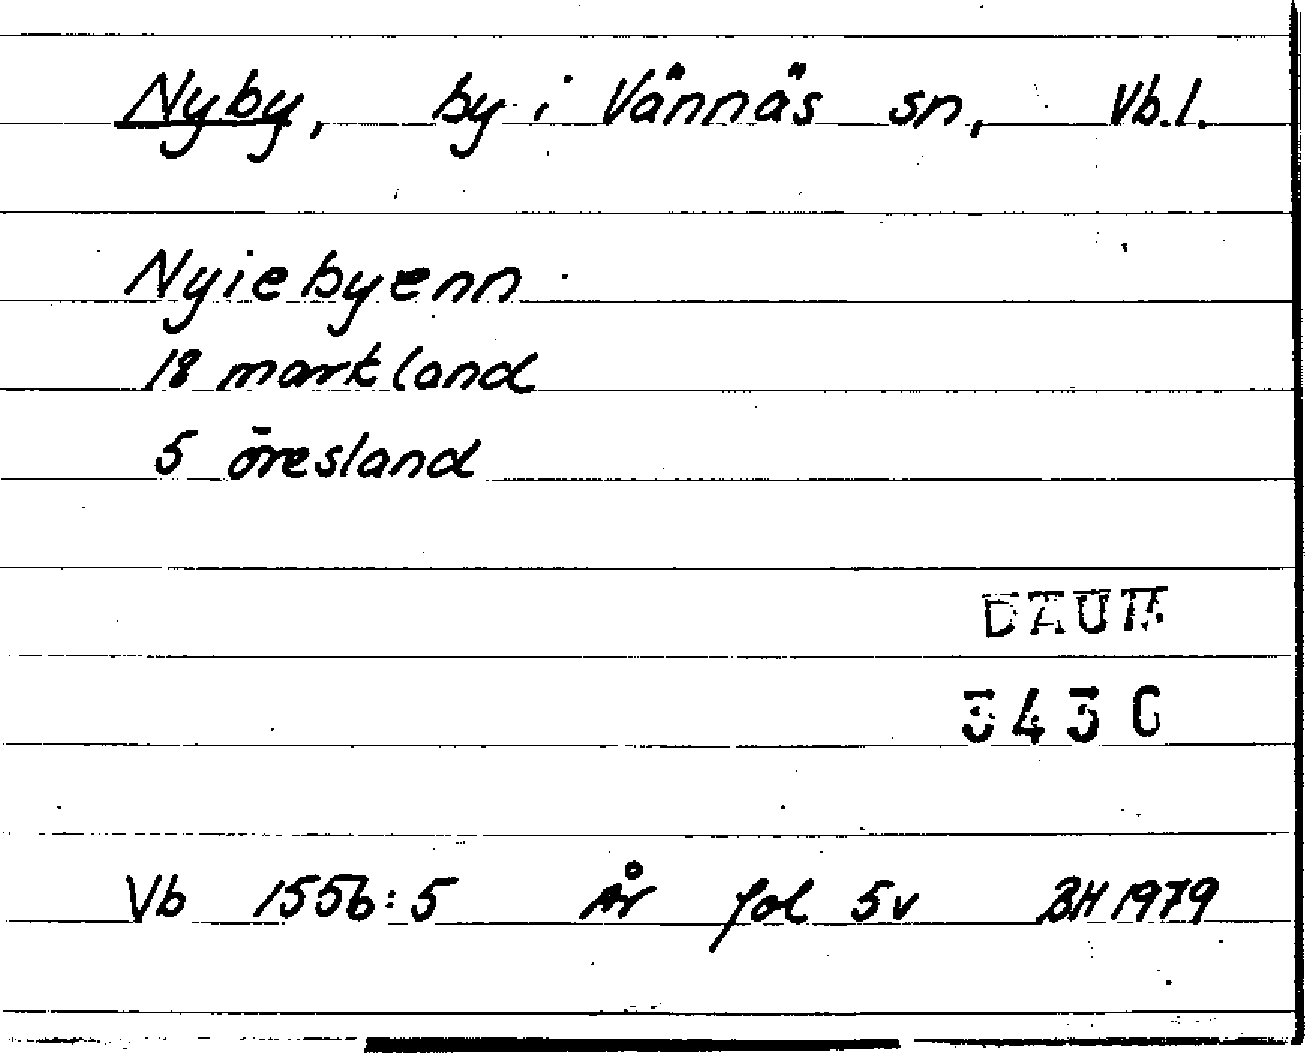 Nyby, by i Vännäs sn, Vb.l.
Nyiebyenn
18 markland
5 öresland
DAUM
3436
Vb 1556:5 År fol 5v BH 1979